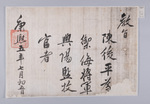 敎旨
陳後平爲
禦侮將軍
興陽監牧
官者
康熙五年七月初五日